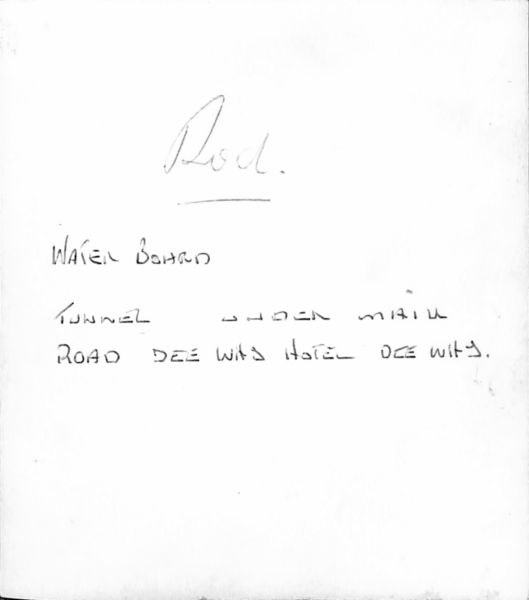 Rod.
WATER BOARD
TUNNEL UNDER MAIN
ROAD DEE WHY HOTEL DEE WHY.